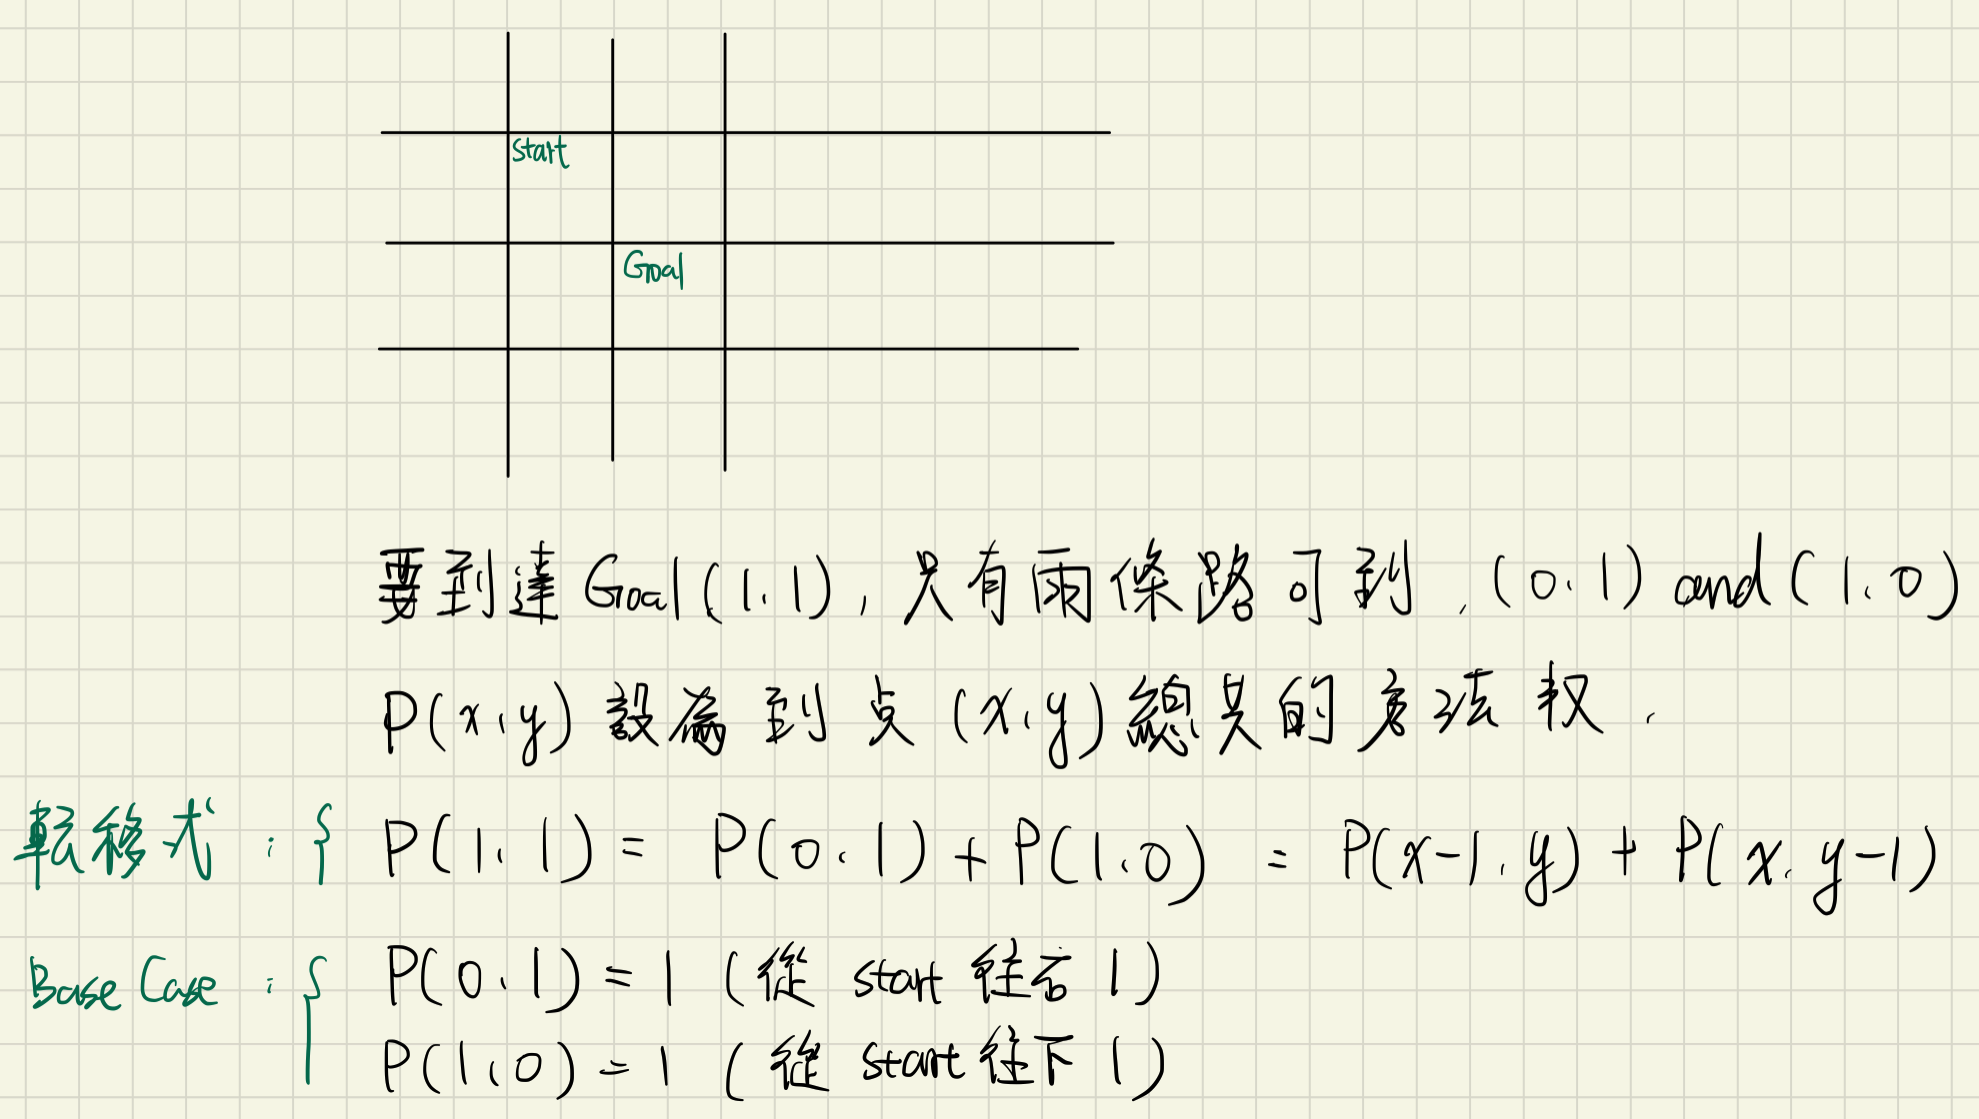 start
Goal
要到達 Goal (1,1), 只有兩條路可到, (0,1) and (1,0)
P(x,y) 設為到点 (x,y) 總共的方法数.
転移式 : { P(1,1) = P(0,1) + P(1,0) = P(x-1,y) + P(x,y-1)
Base Case : { P(0,1) = 1 (從 start 往右 1)
P(1,0) = 1 (從 start 往下 1)